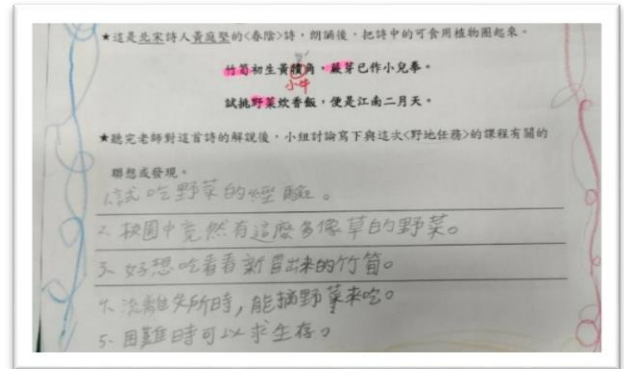 ★這是北宋詩人黃庭堅的<春陰>詩，朗誦後，把詩中的可食用植物圈起來。
竹筍初生黃犢角，蕨芽已作小兒拳。
小牛
試挑野菜炊香飯，便是江南二月天。
★聽完老師對這首詩的解說後，小組討論寫下與這次<野地任務>的課程有關的
聯想或發現。
1.試吃野菜的經驗。
2.校園中竟然有這麼多像草的野菜。
3.好想吃看看新冒出來的竹筍。
4.流離失所時,能摘野菜來吃。
5.困難時可以求生存。